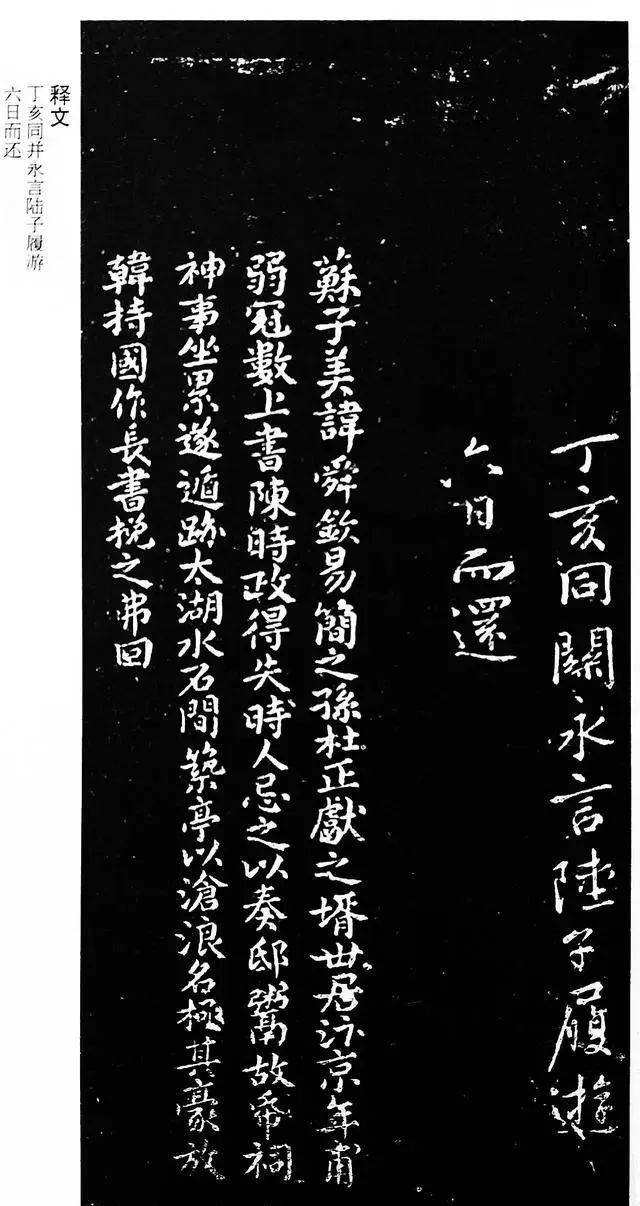 丁亥同關永言陸子履遊
六日而還
蘇子美諱舜欽易簡之孫杜正獻之壻世居汴京年甫
弱冠數上書陳時政得失時人忌之以奏邸鬻故帋祠
神事坐累遂遁跡太湖水石間築亭以滄浪名極其豪放
韓持國作長書挽之弗回
释文
丁亥同并永言陆子履游
六日而还